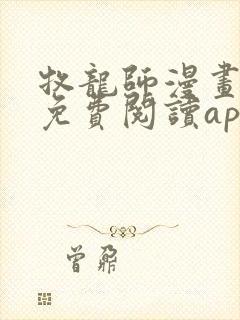 牧龍師漫畫
免費閱讀ap
曾鞏